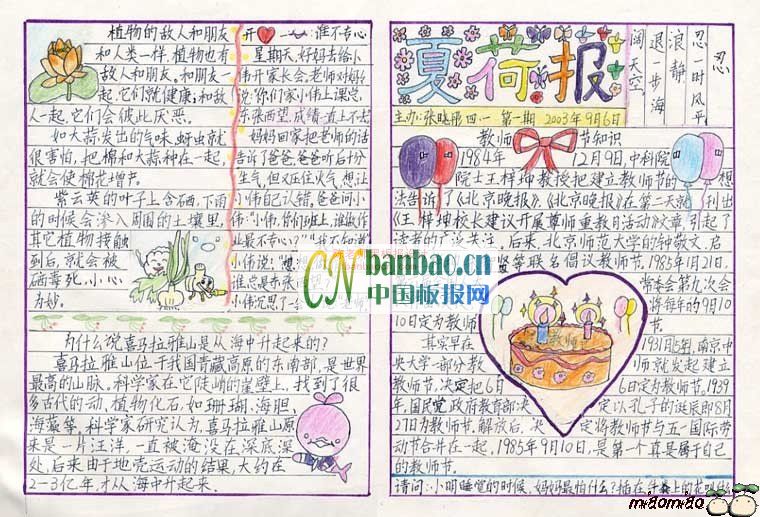 植物的敌人和朋友
和人类一样,植物也有
敌人和朋友。和朋友一
起,它们就健康;和敌
人一起,它们会彼此厌恶。
如大蒜发出的气味,蚜虫就
很害怕。把棉和大蒜种在一起,
就会使棉花增产。
紫云英的叶子上含硒,下雨
的时候会渗入周围的土壤里,
其它植物接触
到后,就会被
硒毒死。小心
为妙。
开心一
谁不专心
星期天,好妈去给小
伟开家长会,老师对妈
说:你们家小伟上课总
东张西望,成绩一直上不去
妈妈回家把老师的话
告诉了爸爸,爸爸听后十分
生气,但又压住火气,想让
小伟自己认错,爸爸问小
伟:"小伟,你们班上,谁做作
业最不专心?""我不知道"
小伟说:"想
谁总是东张
小伟沉思了一会
为什么说喜马拉雅山是从海中升起来的?
喜马拉雅山位于我国青藏高原的东南部,是世界
最高的山脉。科学家在它陡峭的崖壁上,找到了很
多古代的动、植物化石,如珊瑚、海胆、
海藻等。科学家研究认为,喜马拉雅山原
来是一片汪洋,一直被淹没在深底深
处,后来由于地壳运动的结果,大约在
2-3亿年才从海中升起来。
夏荷报
忍
忍一时风平
浪静
退一步海
阔天空
主办:张晓 四·一 第一期 2003年9月6日
教师节知识
1984年12月9日,中科院
院士王梓坤教授把建立教师节的想
法告诉了《北京晚报》,《北京晚报》在第二天就刊出
《王梓坤校长建议开展尊师重教月活动》文章,引起了
读者的广泛关注。后来,北京师范大学的钟敬文、启
等联名倡议教师节。1985年1月21日,
常委会第九次会
将每年的9月10
日定为教师
其实早在1931年,南京中
央大学一部分教师就发起建立
教师节,决定把6月6日定为教师节。1939
年,国民党政府教育部决定以孔子的诞辰即8月
27日为教师节。解放后,决定将教师节与五一国际劳
动节合并在一起,1985年9月10日,是第一个真是属于自己
的教师节。
请问:小明睡觉的时候,妈妈最怕什么?
CN banbao.cn
中国板报网
miao miao